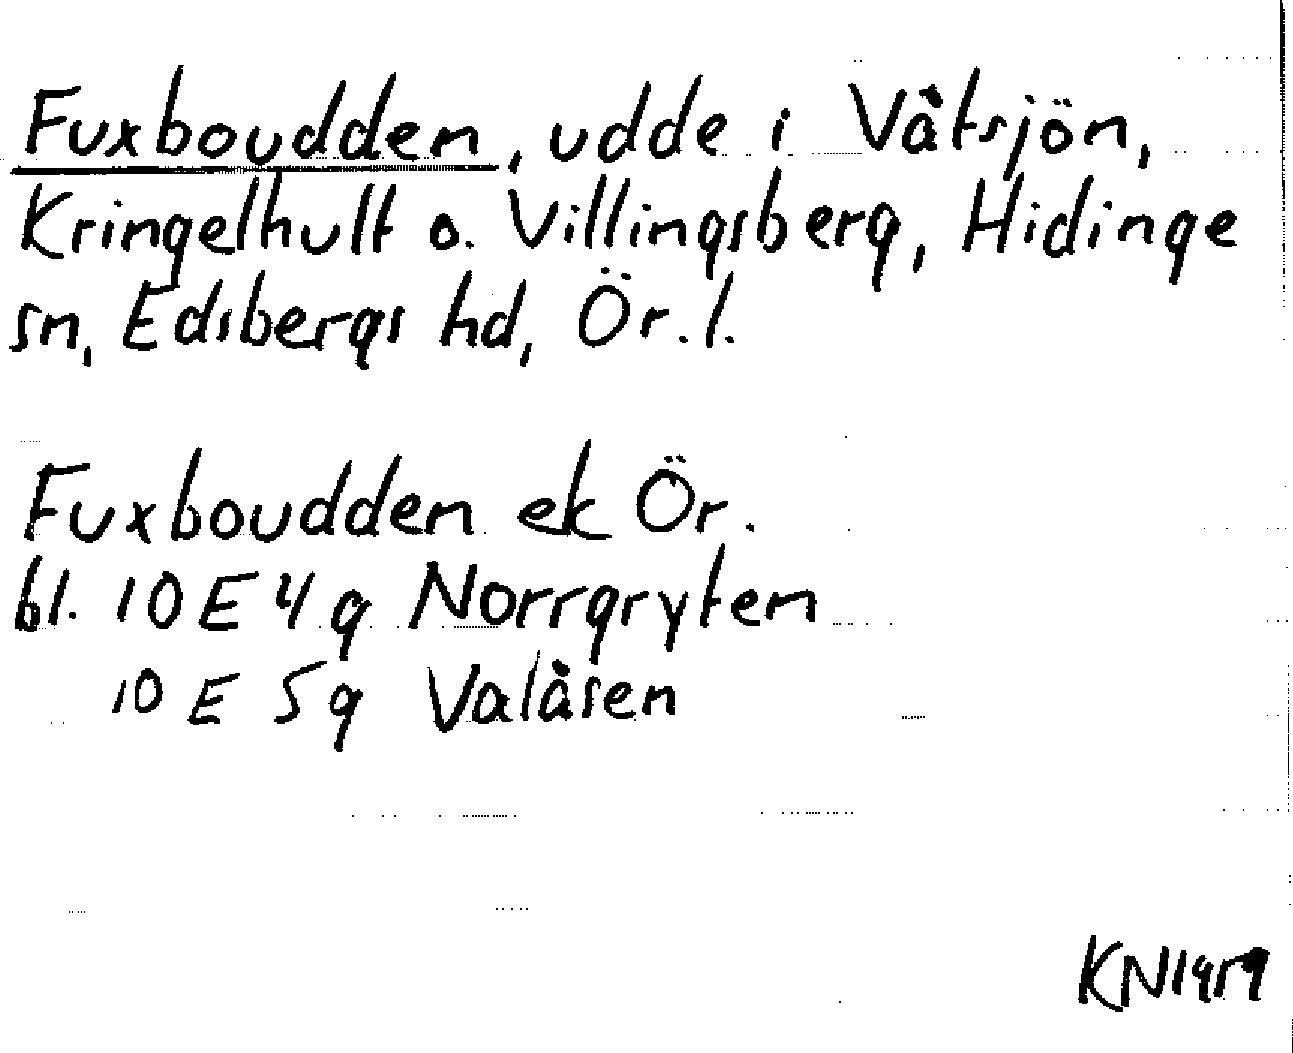 Fuxboudden, udde i Våtsjön,
Kringelhult o. Villingsberg, Hidinge
sn, Edsbergs hd, Ör. l.
Fuxboudden ek Ör.
bl. 10 E 4 g Norrgryten
10 E 5 g Valåsen